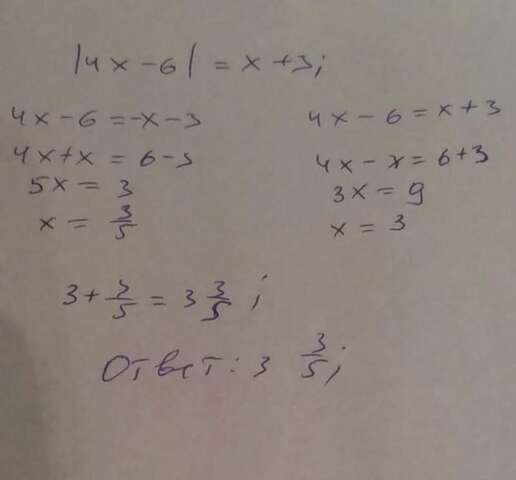 |4x - 6| = x + 3;
4x - 6 = -x - 3
4x + x = 6 - 3
5x = 3
x = 3/5
4x - 6 = x + 3
4x - x = 6 + 3
3x = 9
x = 3
3 + 3/5 = 3 3/5;
Ответ: 3 3/5;